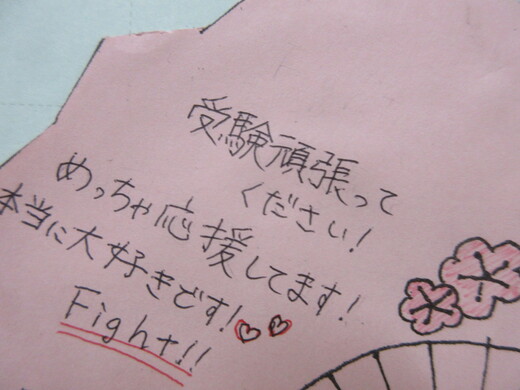 受験頑張って
ください!
めっちゃ応援してます!
本当に大好きです!
Fight!!